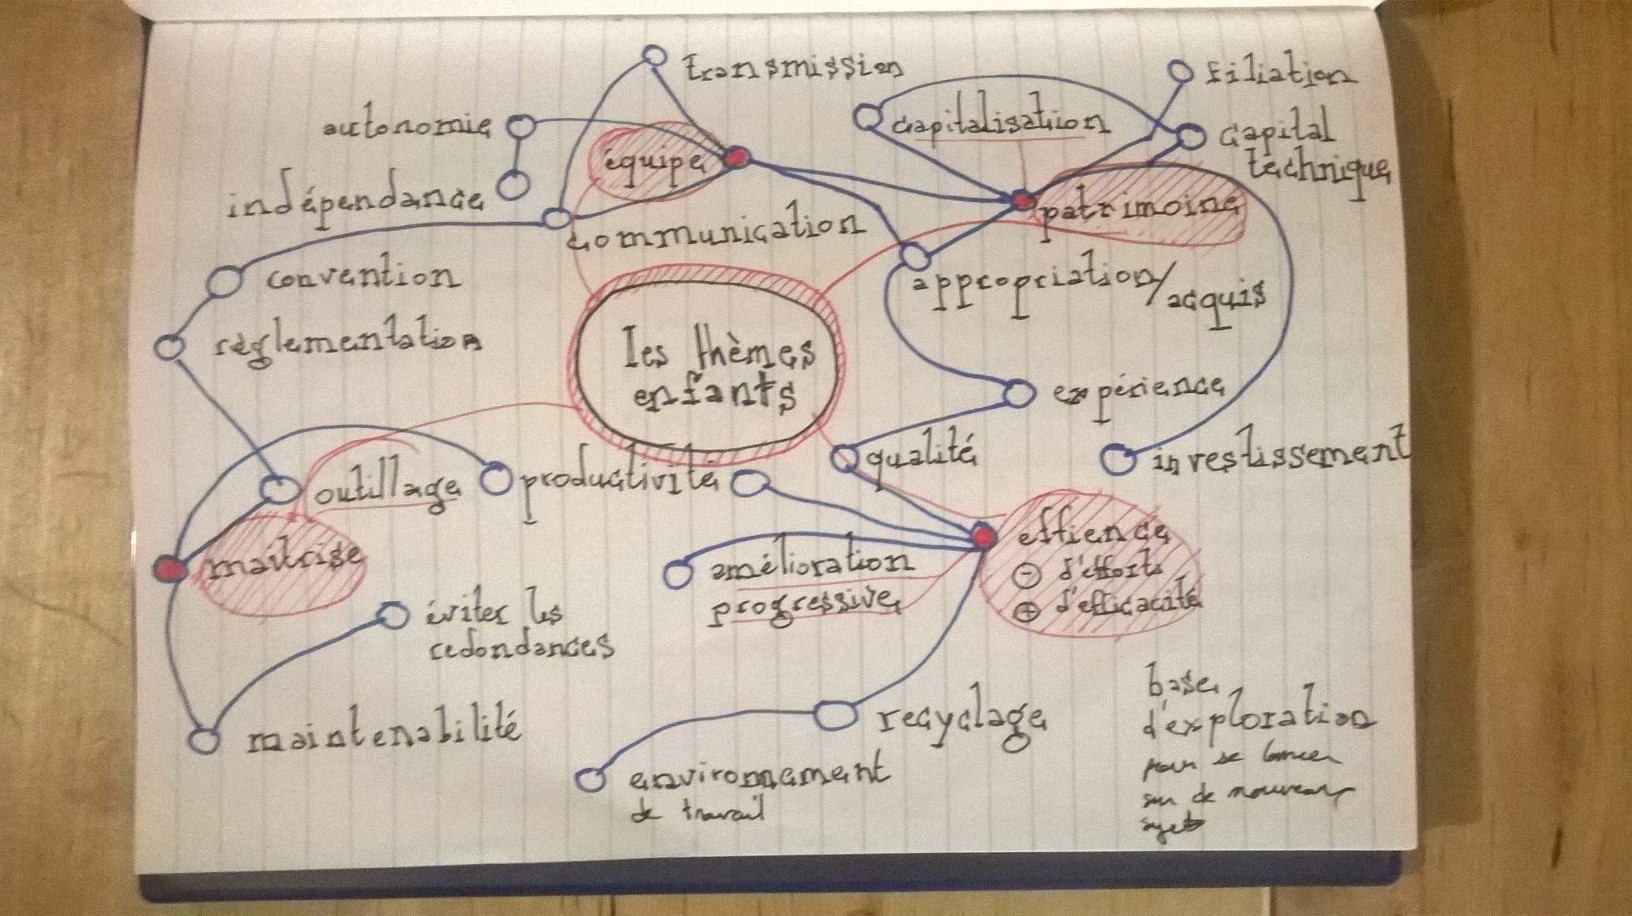 transmission
filiation
autonomie
capitalisation
capital
technique
équipe
indépendance
patrimoine
communication
convention
appropriation/
acquis
réglementation
les thèmes
enfants
expérience
qualité
investissement
outillage
productivité
effience
maitrise
amélioration
progressive
- d'efforts
+ d'efficacité
éviter les
redondances
maintenabilité
recyclage
environnement
de travail
base
d'exploration
pour se lancer
sur de nouveaux
sujets